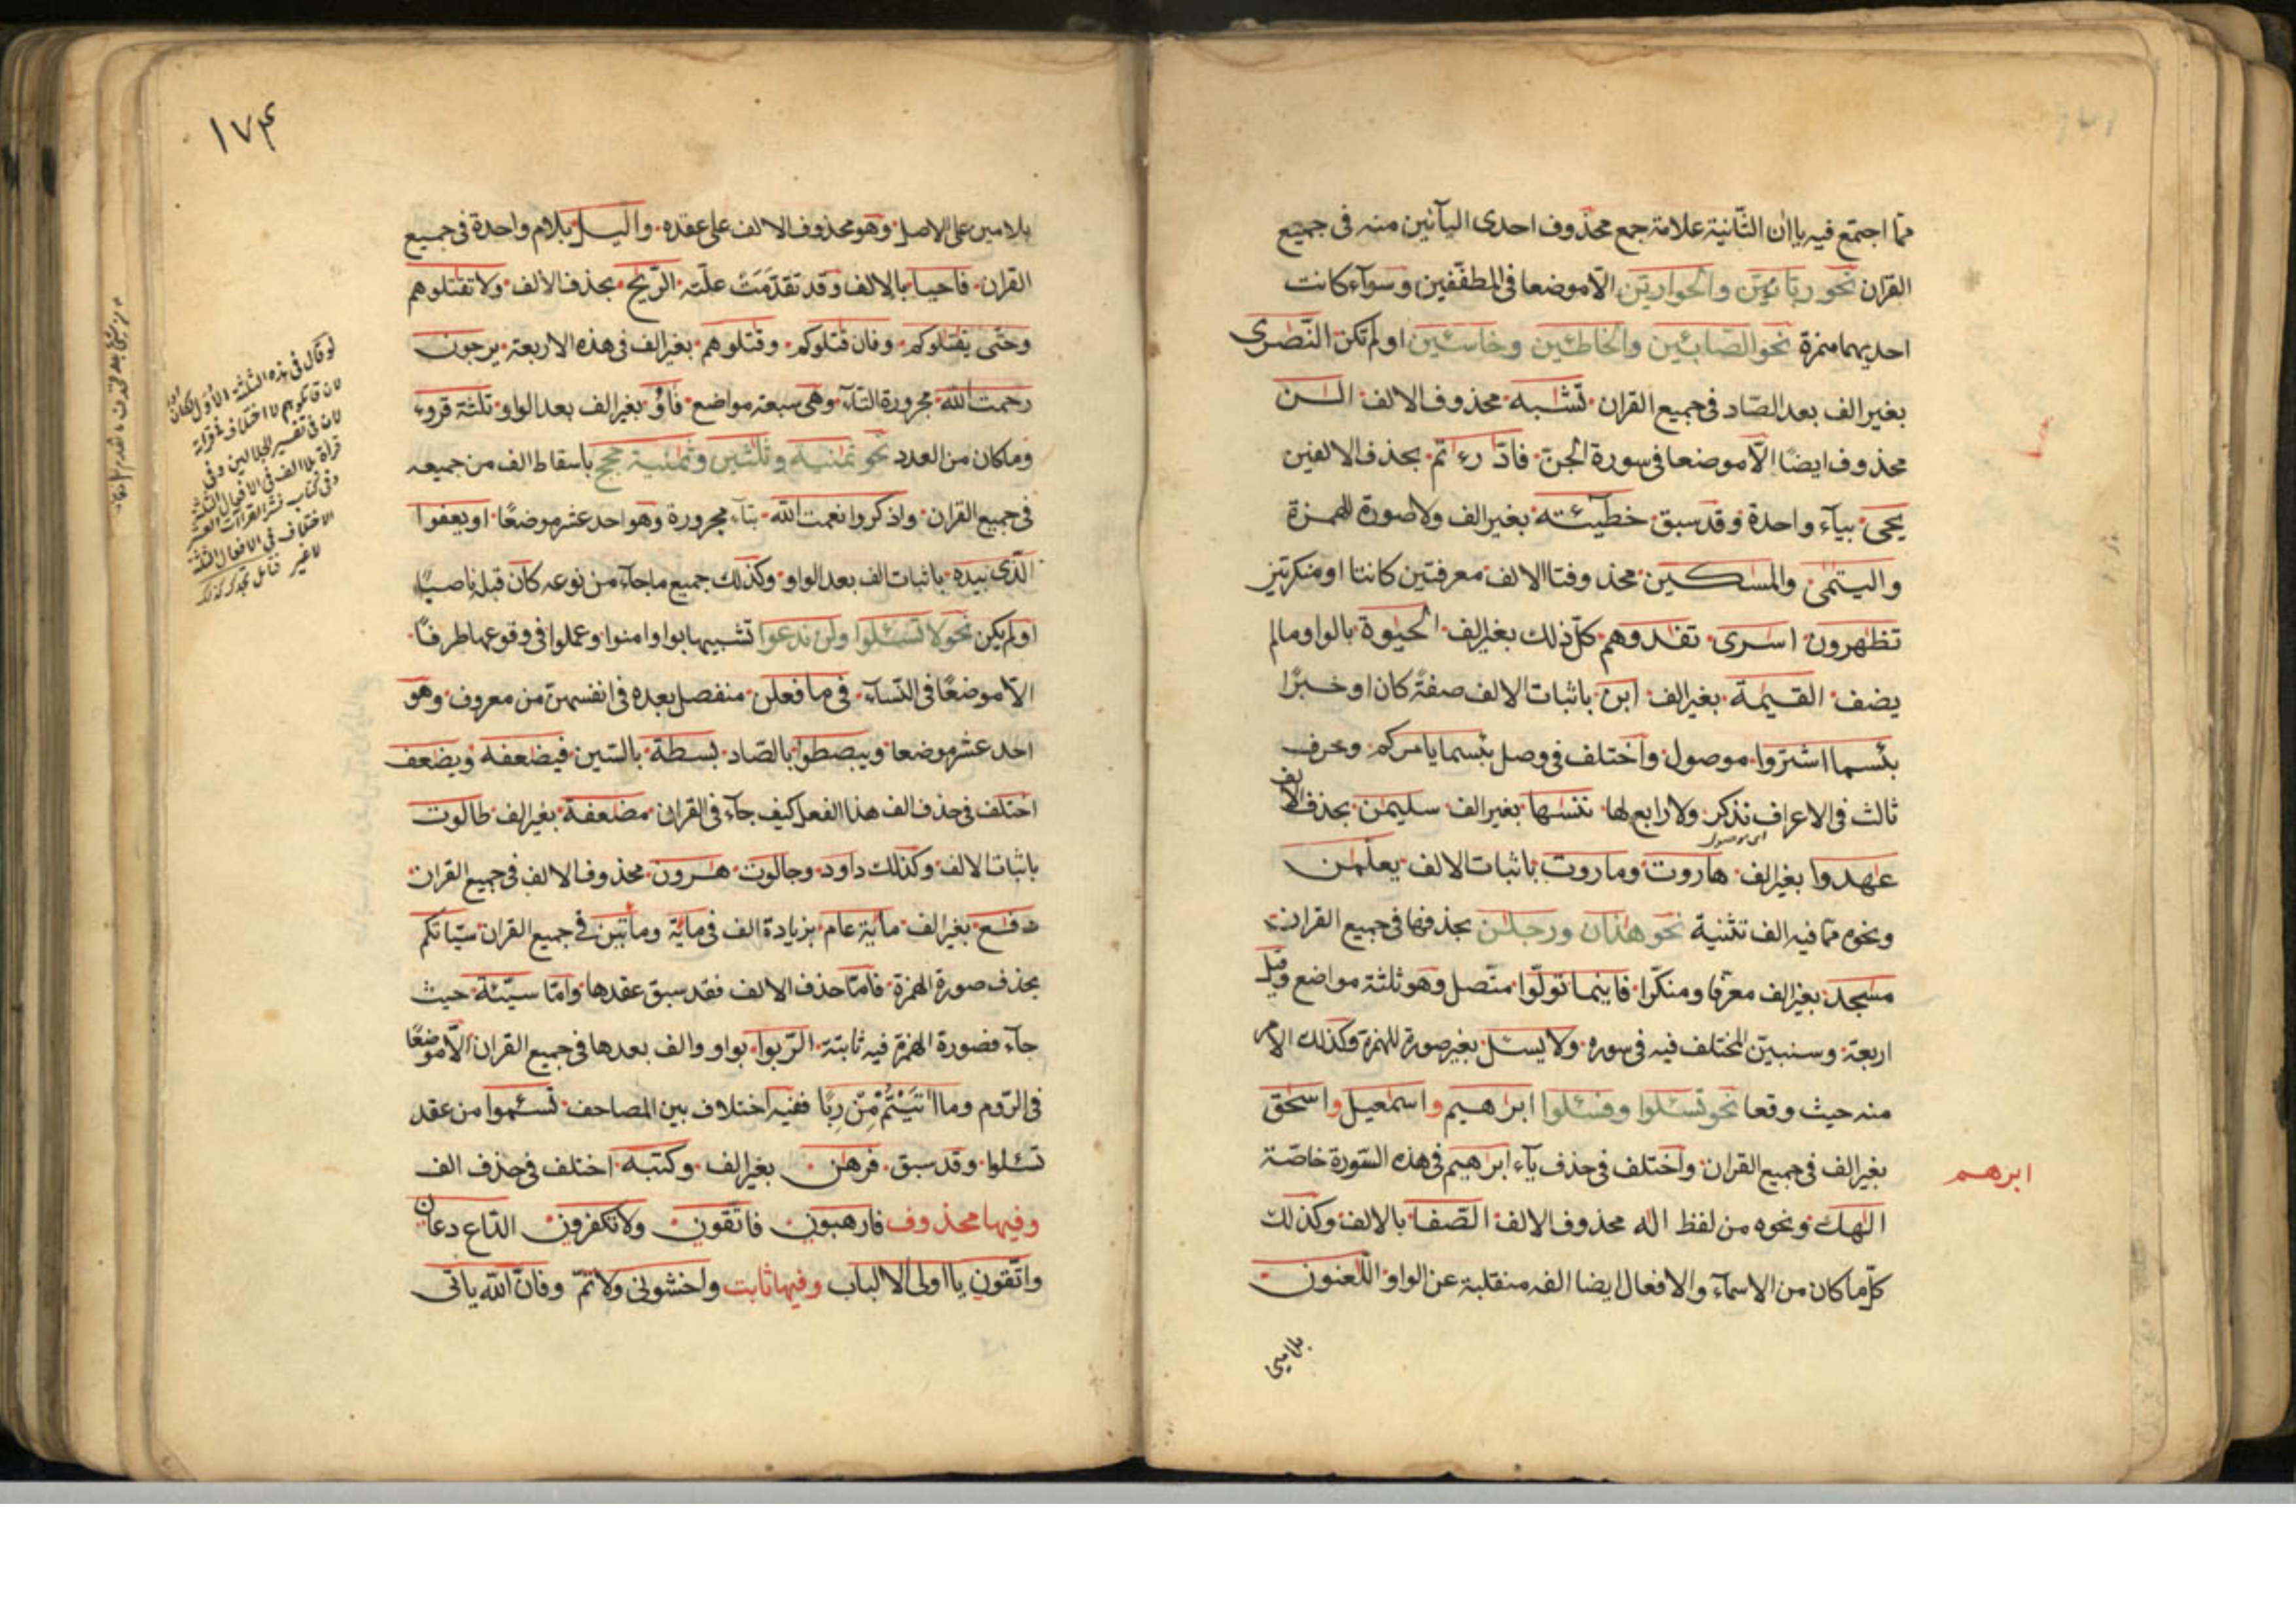 ممّا اجتمع فيه ياان الثّانية علامة جمع محذوف احدى اليآئين منه فى جميع
القرآن نحو ربّانيّن والحواريّن الّا موضعا فى المطفّفين وسوآء كانت
احديهما همزة نحو الصّابئين والخاطئين وخاسئين او لم تكن النّصٰرى
بغير الف بعد الصّاد فى جميع القران تشٰبه محذوف الالف الٰن
محذوف ايضًا الّا موضعا فى سورة الجنّ فادّٰرءٰتم بحذف الالفين
يحيى بيآء واحدة وقد سبق خطيئته بغير الف ولا صورة للهمزة
واليتٰمى والمسٰكين محذوفتا الالف معرفتين كانتا او منكرتين
تظٰهرون اسٰرى تفٰدوهم كلّ ذلك بغير الف الحيٰوة بالواو مالم
يضف القيٰمة بغير الف ابن باثبات الالف صفة كان او خبرًا
بئسما اشتروا موصول واختلف فى وصل بئسما يامركم وحرف
ثالث فى الاعراف نذكر ولا رابع لها ننسٰها بغير الف سليمٰن بحذف الالف
اى موصول
عٰهدوا بغير الف هاروت وماروت باثبات الالف يعلّمٰن
ونحوه ممّا فيه الف تثنية نحو هذٰان ورجلٰن بحذفها فى جميع القران
مسٰجد بغير الف معرّفا ومنكّرا فاينما تولّوا متّصل وهو ثلثة مواضع وقيل
اربعة وسنبيّن المختلف فيه فى سوره ولا يسئل بغير صورة للهمزة وكذلك الامر
منه حيث وقعا نحو تسئلوا وفسئلوا ابرٰهيم واسمٰعيل واسحٰق
بغير الف فى جميع القران واختلف فى حذف يآء ابرٰهيم فى هذه السّورة خاصّة
ابرهم
الٰهك ونحوه من لفظ اله محذوف الالف الصّفا بالالف وكذلك
كلّ ما كان من الاسمآء والافعال ايضا الفه منقلبة عن الواو اللّعنون
بلامين
١٧٤
بلامين على الاصل وهو محذوف الالف على عقده واليل بلام واحدة فى جميع
القران فاحيا بالالف وقد تقدّمت علّته الرّيح بحذف الالف ولا تقٰتلوهم
وحتّى يقٰتلوكم وفان قٰتلوكم وقٰتلوهم بغير الف فى هذه الاربعة يرجون
رحمت الله مجرورة التآء وهى سبعة مواضع فاؤ بغير الف بعد الواو ثلٰثة قروء
وما كان من العدد نحو ثمٰنية وثلٰثين وثمٰنية حجج باسقاط الف من جميعه
فى جميع القران واذكروا نعمت الله بتآء مجرورة وهو احد عشر موضعًا او يعفوا
الّذى بيده باثبات الف بعد الواو وكذلك جميع ما جآء من نوعه كان قبله ناصبًا
او لم يكن نحو لا تسئلوا ولن ندعوا تشبيها بواو امنوا وعملوا فى وقوعها طرفًا
الّا موضعًا فى النّسآء فى ما فعلن منفصل بعده فى انفسهنّ من معروف وهو
احد عشر موضعا ويبصطوا بالصّاد بسطة بالسّين فيضٰعفه ويضٰعف
اختلف فى حذف الف هذا الفعل كيف جآء فى القران مضٰعفة بغير الف طالوت
باثبات الالف وكذلك داود وجالوت هٰرون محذوف الالف فى جميع القران
دفٰع بغير الف مائة عام بزيادة الف فى مائة ومأتين فى جميع القران سيّاتكم
بحذف صورة الهمزة فامّا حذف الالف فقد سبق عقدها وامّا سيّئة حيث
جآء فصورة الهمزة فيه ثابتة الرّبوا بواو والف بعدها فى جميع القران الّا موضعًا
فى الرّوم وما اٰتيتم مّن رّبًا ففيه اختلاف بين المصاحف تسئموا من عقد
تسئلوا وقد سبق فرهٰن بغير الف وكتبه اختلف فى حذف الف
وفيها محذوف فارهبون فاتّقون ولا تكفرون الدّاع دعان
واتّقون يا اولى الالباب وفيها ثابت واخشونى ولاتمّ وفانّ الله ياتى
لو قال فى هذه الثلثة الاول لكان اولى
لان قاتلوهم لا اختلاف فى قراءة
لان فى تفسير الجلالين وفى
قراءة بلا الف فى الافعال الثلثة
وفى كتاب نشر القراءات العشر
الاختلاف فى الافعال الثلثة
لا غير